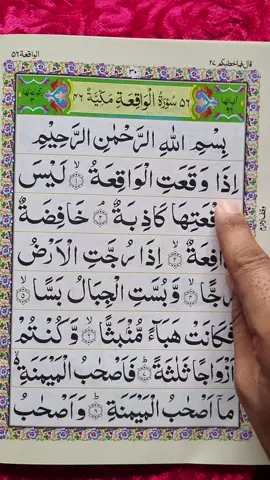 قال فما خطبكم ٢٧
الواقعة ٥٦
٥٦ سُوْرَةُ الْوَاقِعَةِ مَكِّيَّةٌ ٤٦
بِسْمِ اللّٰهِ الرَّحْمٰنِ الرَّحِيْمِ
اِذَا وَقَعَتِ الْوَاقِعَةُ ۙ﴿١﴾ لَيْسَ
كَاذِبَةٌ ۘ﴿٢﴾ خَافِضَةٌ
اِذَا رُجَّتِ الْاَرْضُ
رَجًّا ۙ﴿٤﴾ وَّبُسَّتِ الْجِبَالُ بَسًّا ۙ﴿٥﴾
فَكَانَتْ هَبَآءً مُّنْۢبَثًّا ۙ﴿٦﴾ وَّكُنْتُمْ
اَزْوَاجًا ثَلٰثَةً ؕ﴿٧﴾ فَاَصْحٰبُ الْمَيْمَنَةِ ۙ
مَاۤ اَصْحٰبُ الْمَيْمَنَةِ ؕ﴿٨﴾ وَاَصْحٰبُ